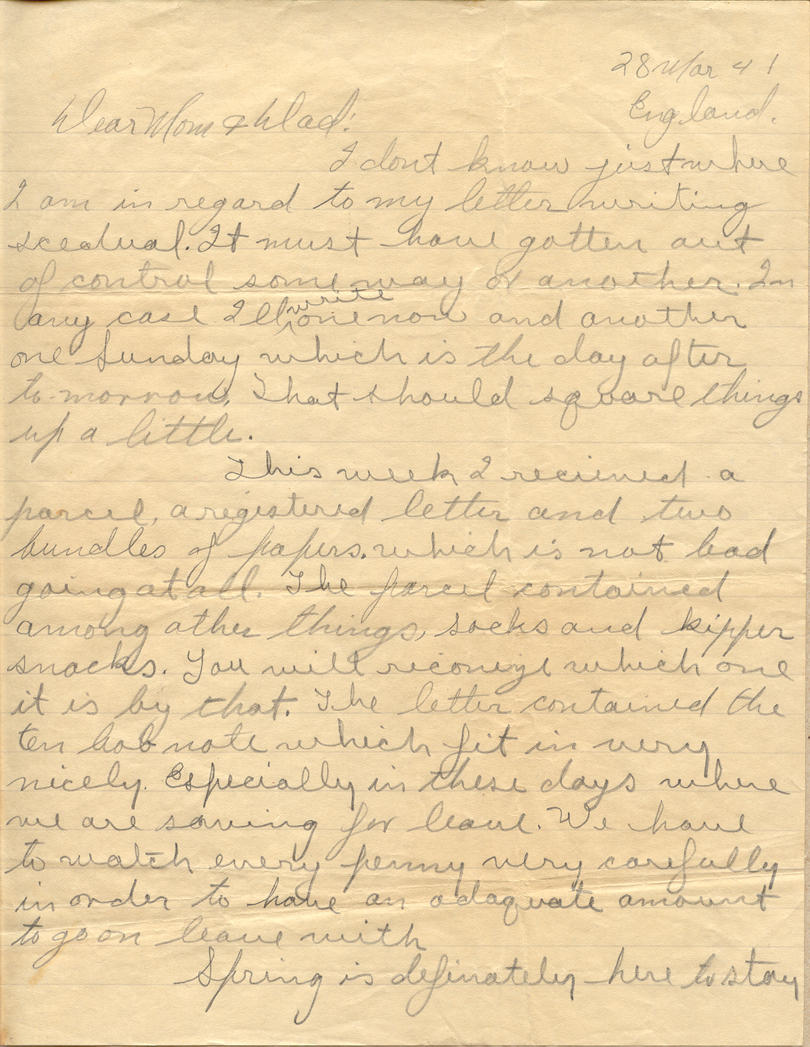 28 Mar 41
England.
Dear Mom & Dad:
I dont know just where
I am in regard to my letter writing
scedual. It must have gotten out
of control some way or another. In
any case I'll write one now and another
one Sunday which is the day after
to-morrow. That should square things
up a little.
This week I recieved a
parcel, a registered letter and two
bundles of papers. which is not bad
going at all. The parcel contained
among other things, socks and kipper
snacks. You will reconize which one
it is by that. The letter contained the
ten bob note which fit in very
nicely. Especially in these days where
we are saving for leave. We have
to watch every penny very carefully
in order to have an adaquate amount
to go on leave with
Spring is definately here to stay